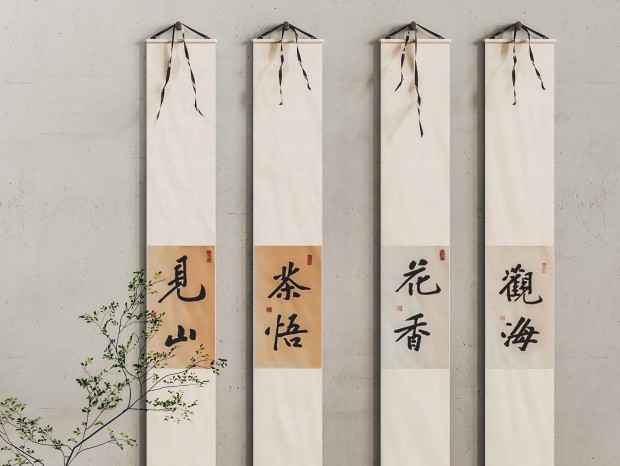 見山
茶悟
花香
觀海